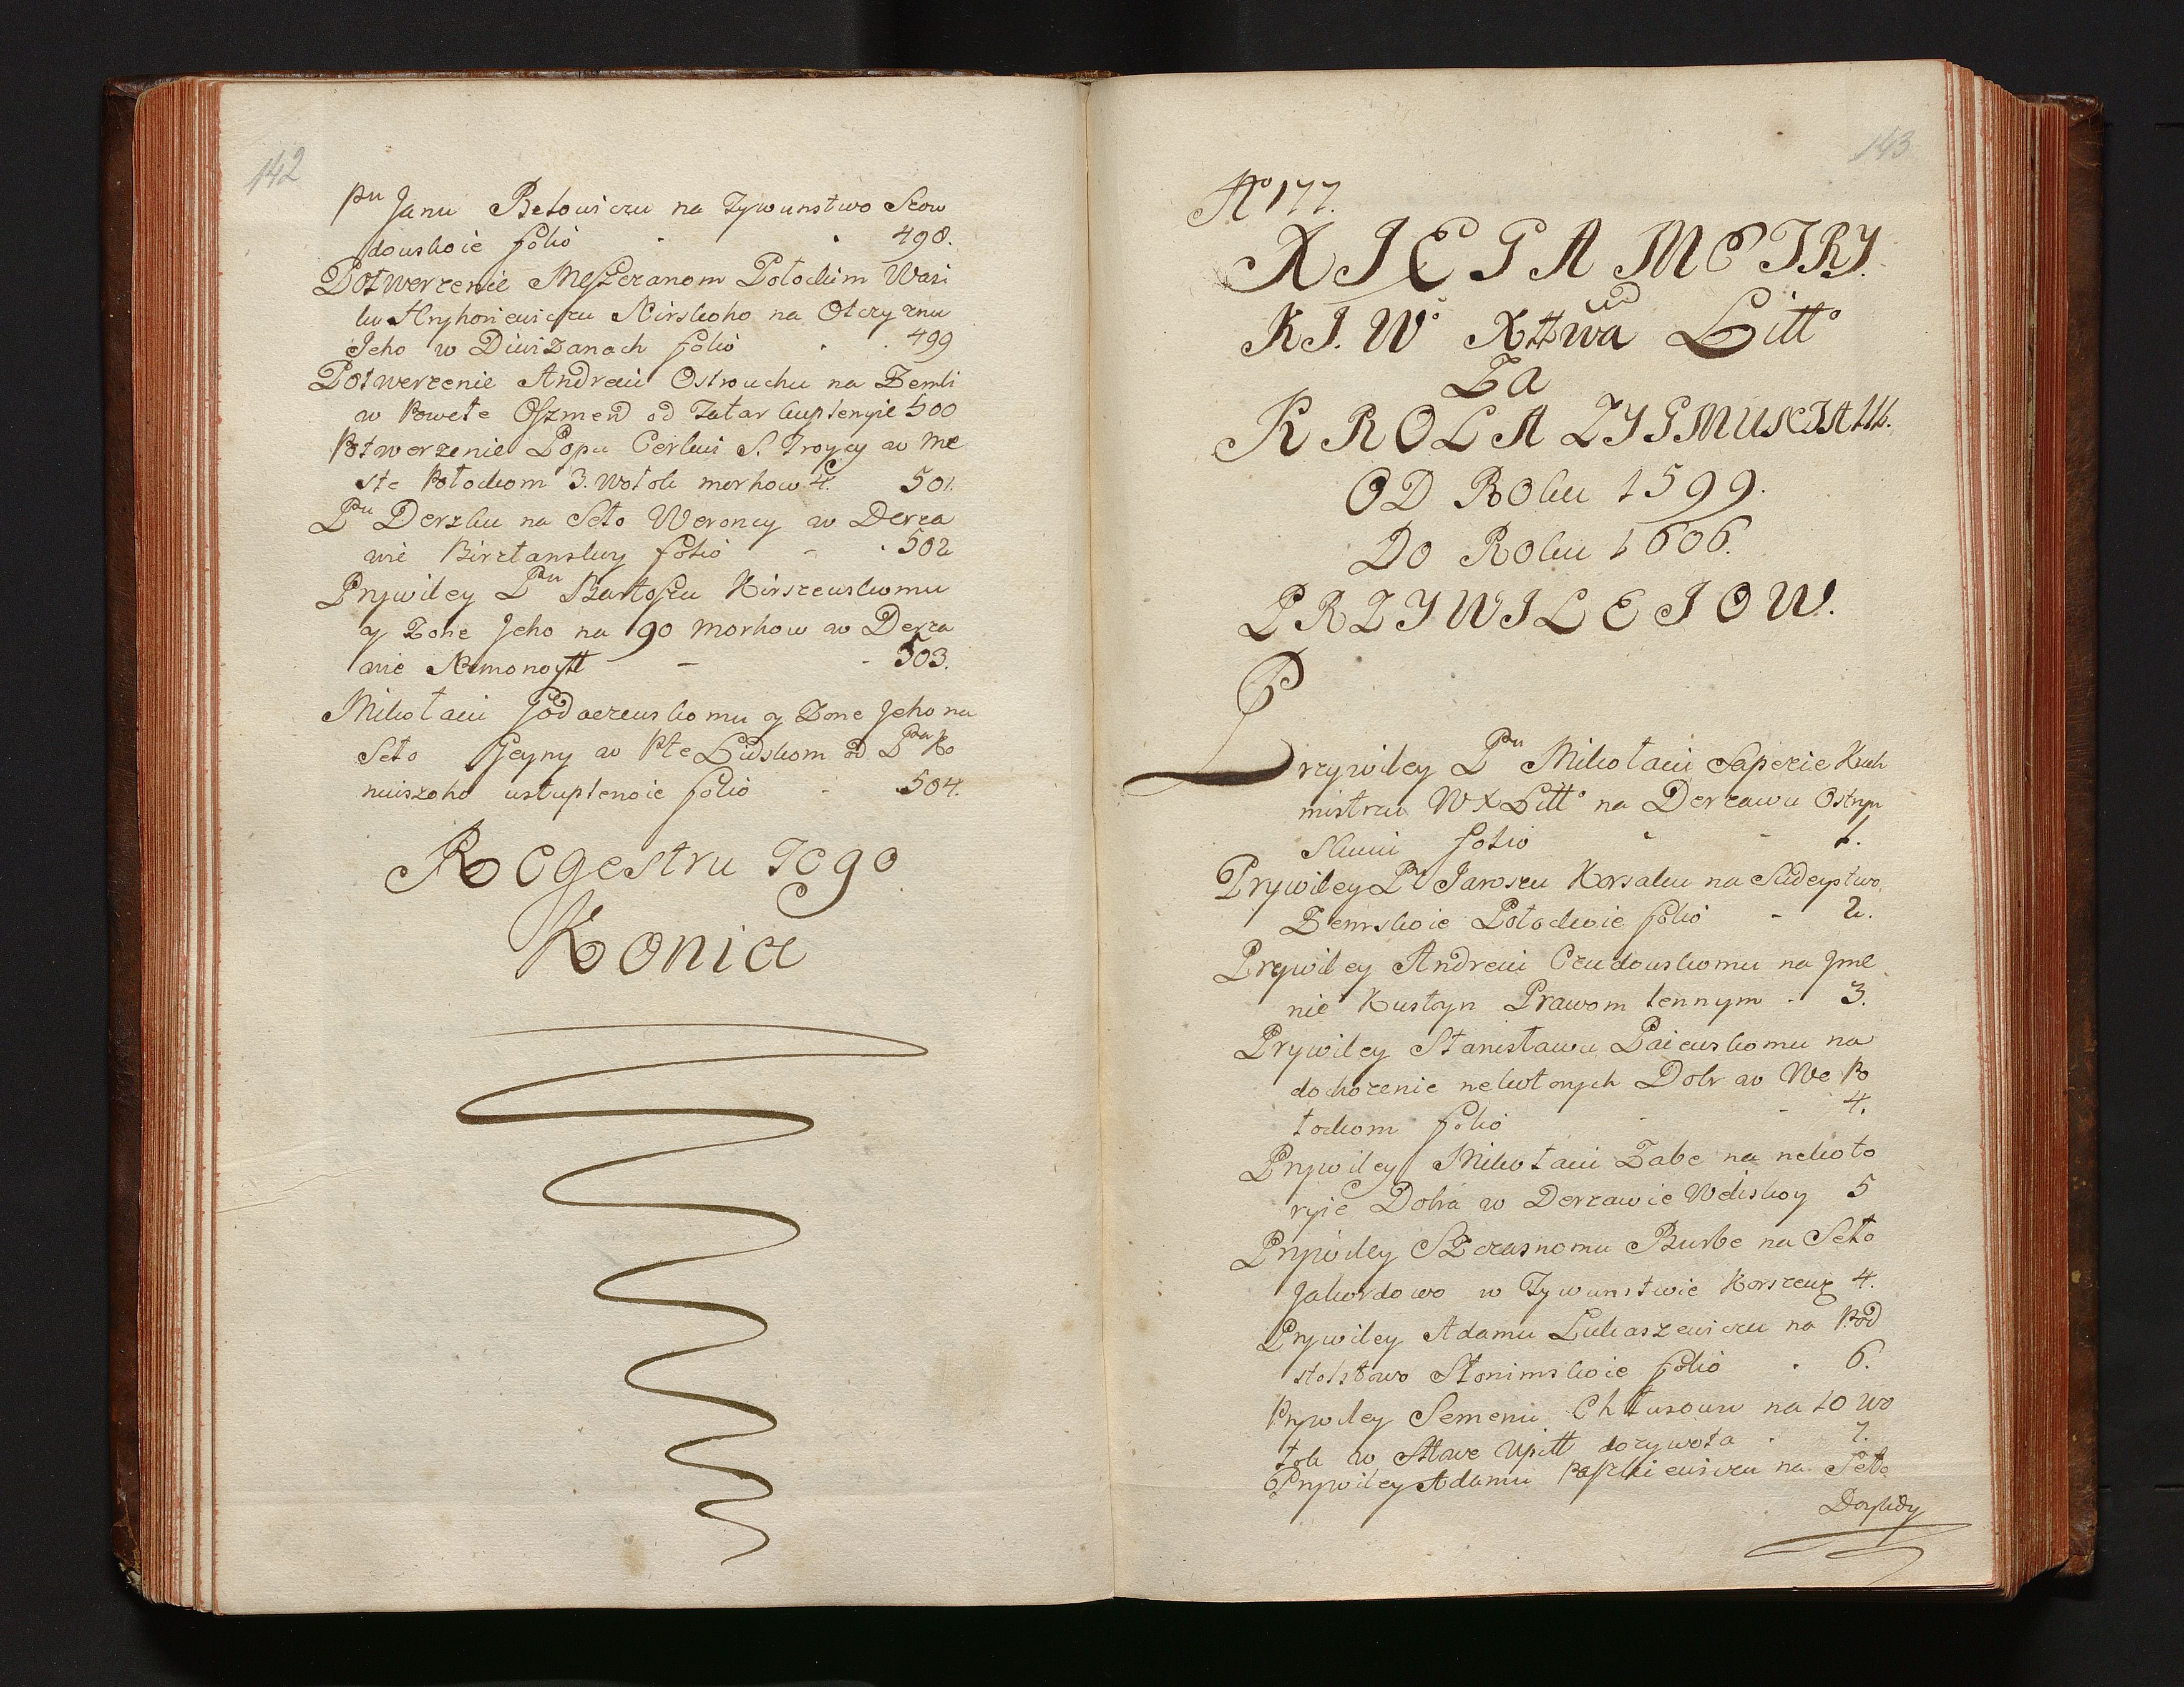 142
Pnu Janu Betowiczu na Tywunstwo Szow
dowskoie folio 498.
Potwerzenie Meszczanom Połockim Wasi
lu Hryhoriewiczu Nirskoho na Otczyznu
Jeho w Diwizanach folio 499
Potwerzenie Andreiu Ostrouchu na Zemli
w Powete Oszmen od Tatar kuplenyie 500
Potwerzenie Popu Cerkwi S. Troycy w Me
ste Połockom 3. Wołok morhow 4. 501.
Pnu Derzku na Seło Weroncy w Derża
wie Birztanskoy folio 502
Prywiley Pnu Bartoszu Kirszewskomu
y Zone Jeho na 90 Morhow w Derza
wie Nemonoytt 503.
Mikołaiu Podaerewskomu y Zone Jeho na
Seło Geyny w Pte Lidskom od Pna Ko
nuiszoho ustuplenoie folio 504.
Regestru Tego
Konia
143
No 177.
XIĘGA METRY.
KI. Wo Xttwa Litto
Za
KROLA ZYGMUNTA III.
OD Roku 1599.
Do Roku 1606.
PRZYWILEIOW.
Przywiley Pnu Mikołaiu Sapezie Kuch
mistrzu WXLitto na Derzawu Ostryn
skuiu folio 1.
Prywiley Pnu Jaroszu Korsaku na Sudeystwo
Zemskoie Połockoie folio 2.
Prywiley Andreiu Czudowskomu na Jme
nie Kustyn Prawom lennym 3.
Prywiley Stanisławu Paiewskomu na
dochozenie nekotorych Dobr w We Po
łockom folio 4.
Prywiley Mikołaiu Zabe na nekoto
ryie Dobra w Derzawie Weliskoy 5
Prywiley Szczasnomu Burbe na Seło
Jakordowo w Tywunstwie Korszewz 4.
Prywiley Adamu Łukaszewiczu na Pod
stolstwo Słonimskoie folio 6.
Prywiley Semenu Chłusowu na 10 Wo
łok w Sttwe Upitt dozywota 7.
Prywiley Adamu Paszkiewiczu na Seło
Doylidy